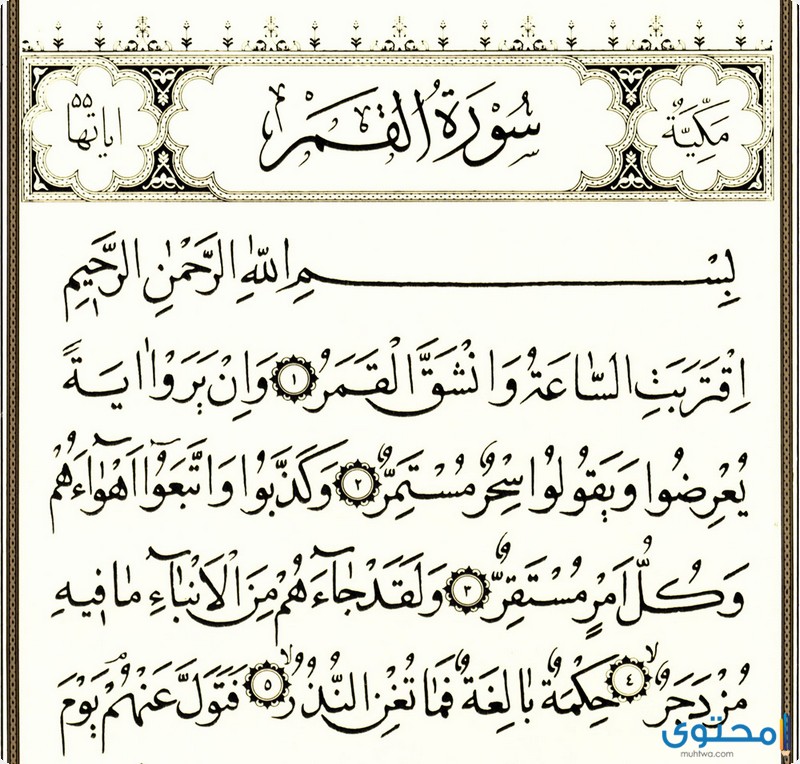 مَكِّيَّةٌ سُورَةُ الْقَمَرِ اياتها ٥٥
بِسْمِ اللّٰهِ الرَّحْمٰنِ الرَّحٖيمِ
اِقْتَرَبَتِ السَّاعَةُ وَانْشَقَّ الْقَمَرُ ١ وَاِنْ يَرَوْا اٰيَةً
يُعْرِضُوا وَيَقُولُوا سِحْرٌ مُسْتَمِرٌّ ٢ وَكَذَّبُوا وَاتَّبَعُٓوا اَهْوَٓاءَهُمْ
وَكُلُّ اَمْرٍ مُسْتَقِرٌّ ٣ وَلَقَدْ جَٓاءَهُمْ مِنَ الْاَنْبَٓاءِ مَا فٖيهِ
مُزْدَجَرٌۙ ٤ حِكْمَةٌ بَالِغَةٌ فَمَا تُغْنِ النُّذُرُۙ ٥ فَتَوَلَّ عَنْهُمْۢ يَوْمَ
محتوى
muhtwa.com